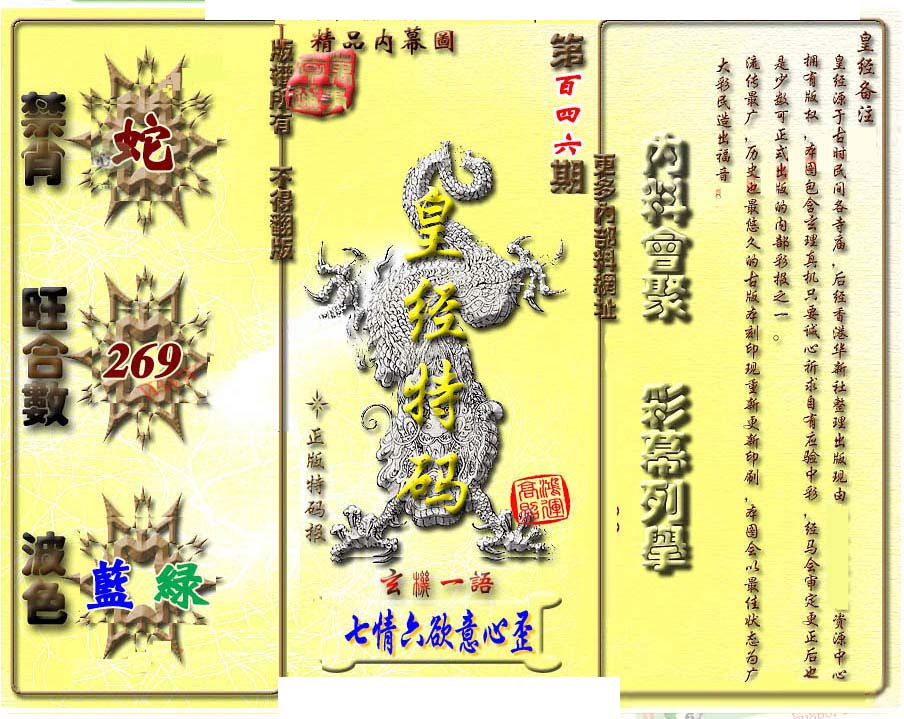 禁肖
蛇
旺合數
269
波色
藍 綠
版權所有 不得翻版
精品内幕圖
第百四六期
皇经特码
正版特码报
鴻運高照
玄機一語
七情六欲意心歪
更多内部料網址
内料會聚
彩幕列舉
皇经备注
皇经源于古时民间各寺庙,后经香港华新社整理出版现由 资源中心
拥有版权,本图包含玄理真机只要诚心祈求自有应验中彩,经马会审定更正后也
是少数可正式出版的内部彩报之一。
流传最广,历史也最悠久的古版本刻印现重新更新印刷,本图会以最佳状态为广
大彩民造出福音